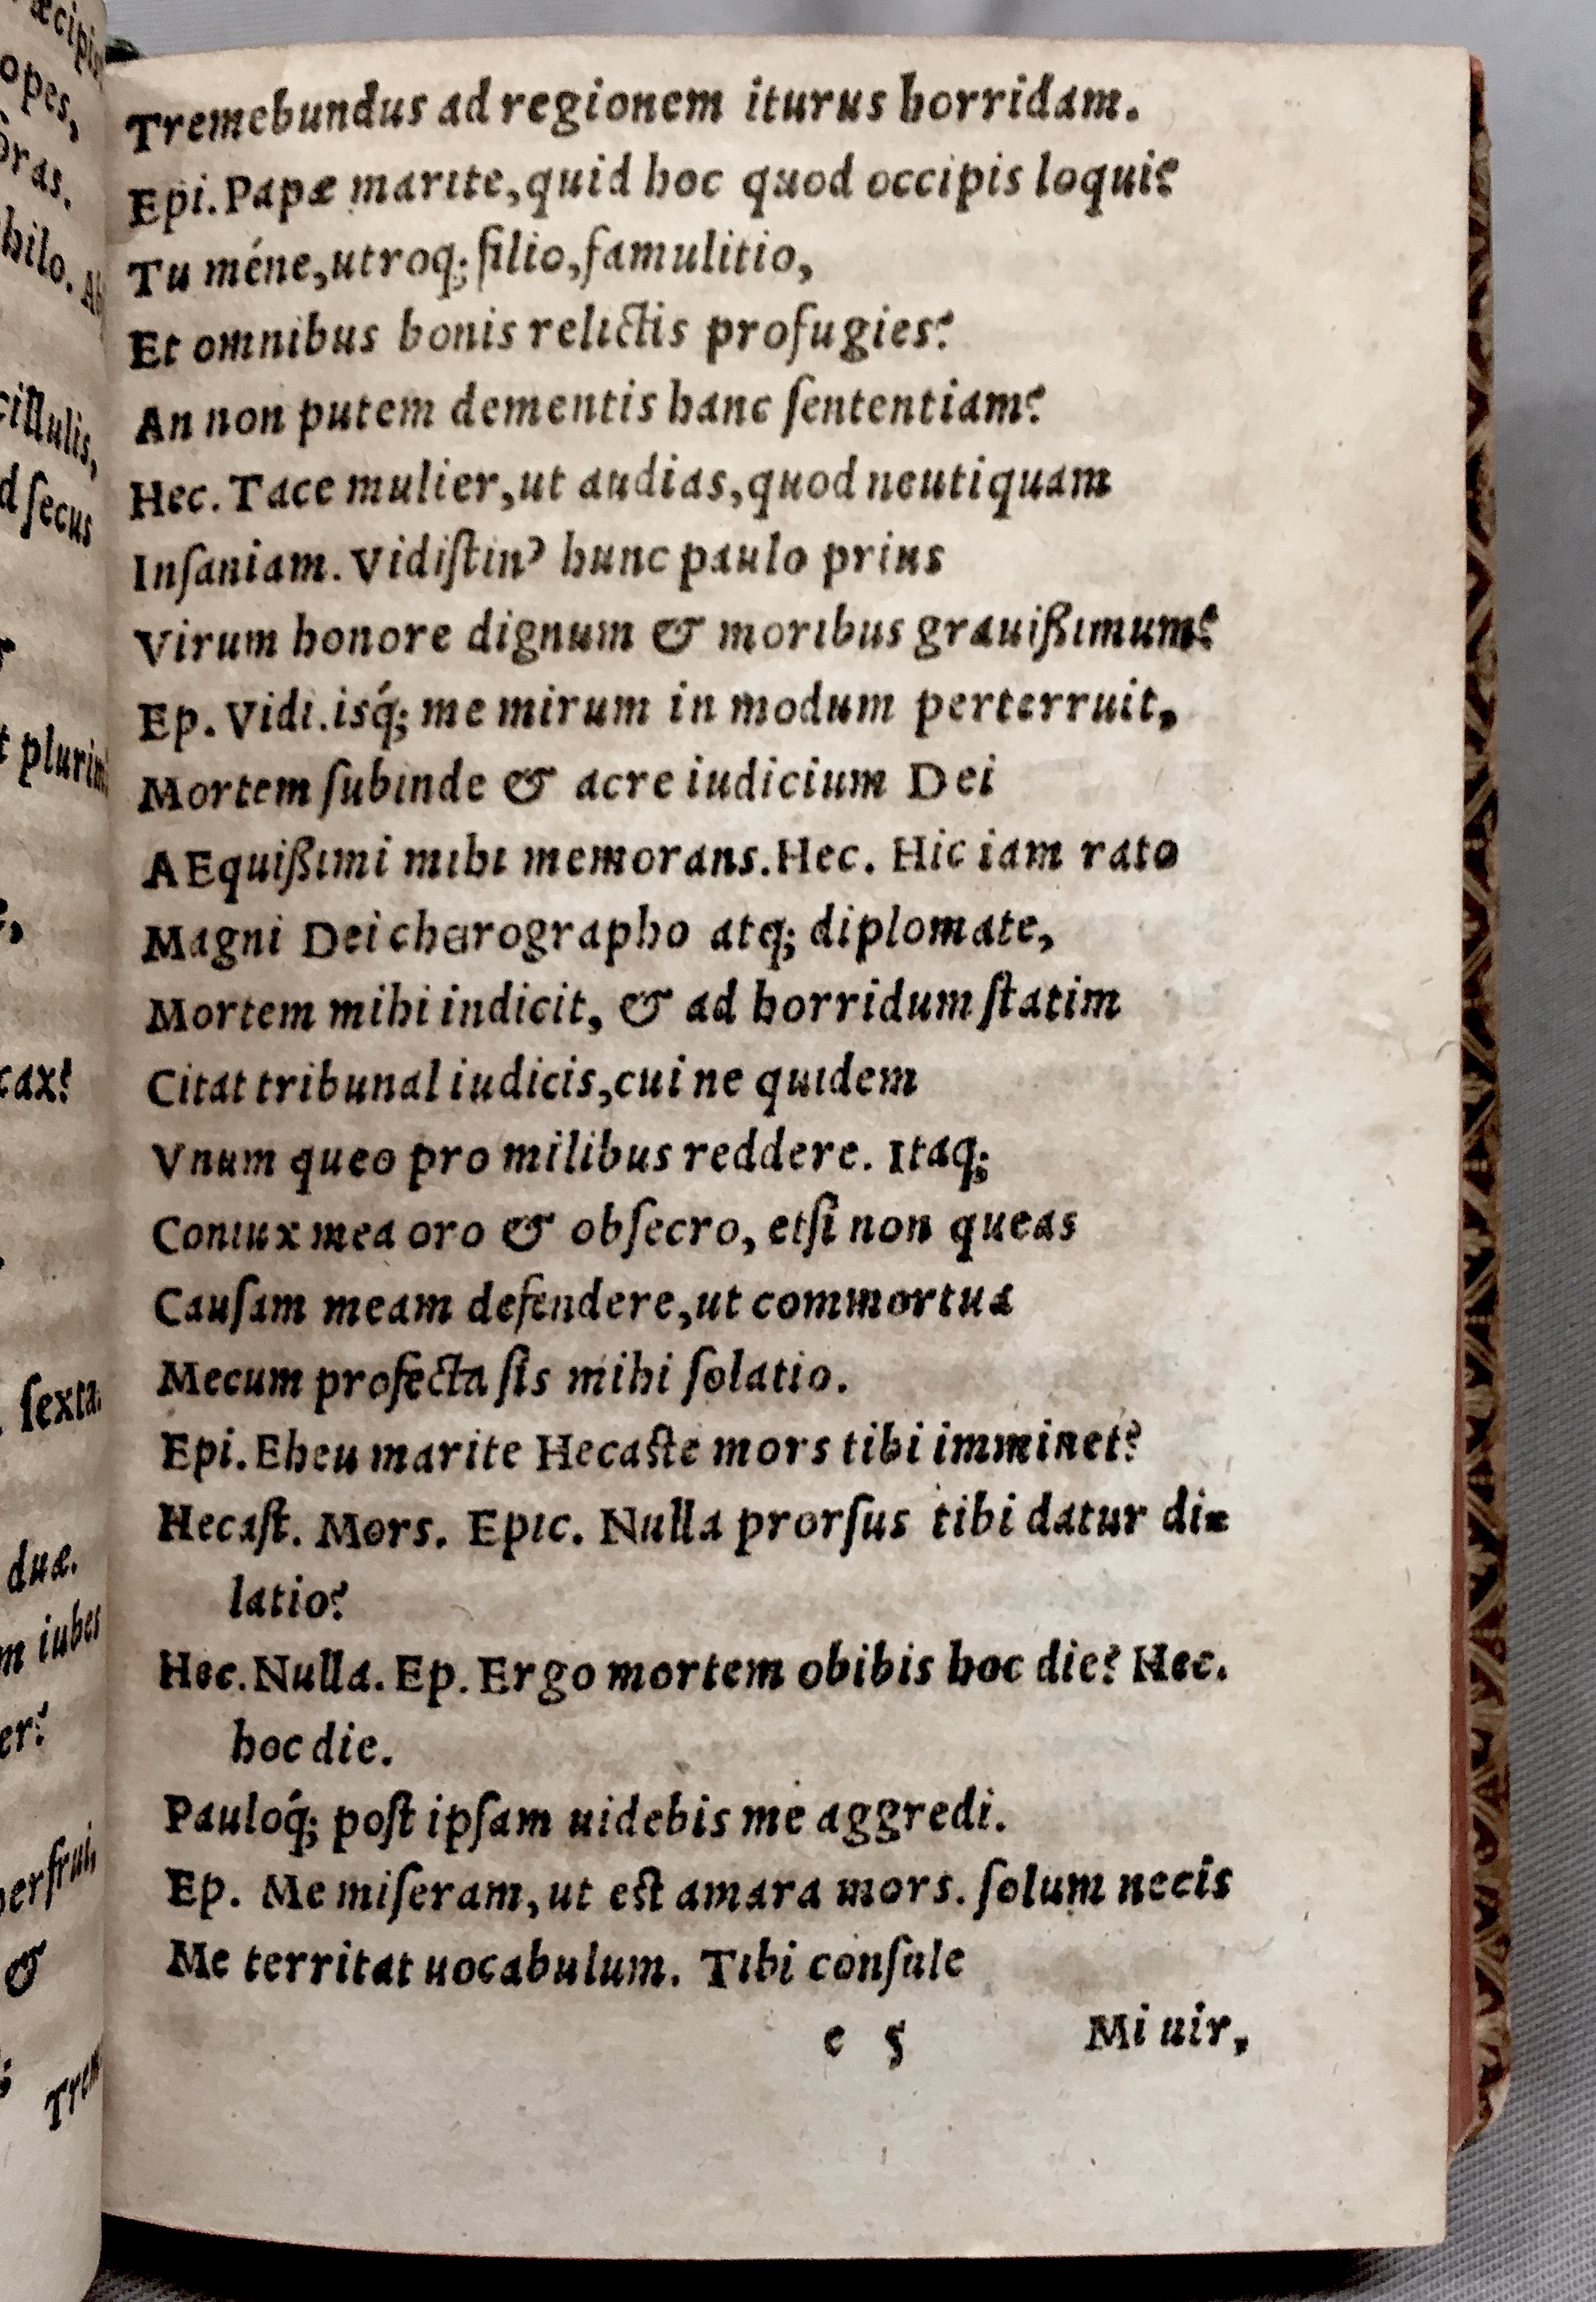 Tremebundus ad regionem iturus horridam.
Epi. Papæ marite, quid hoc quod occipis loqui?
Tu méne, utroq; filio, famulitio,
Et omnibus bonis relictis profugies?
An non putem dementis hanc ſententiam?
Hec. Tace mulier, ut audias, quod neutiquam
Inſaniam. Vidiſtin' hunc paulo prius
Virum honore dignum & moribus grauißimum?
Ep. Vidi. isq́; me mirum in modum perterruit,
Mortem ſubinde & acre iudicium Dei
AEquißimi mihi memorans. Hec. Hic iam rato
Magni Dei chirographo atq; diplomate,
Mortem mihi indicit, & ad horridum ſtatim
Citat tribunal iudicis, cui ne quidem
Vnum queo pro milibus reddere. Itaq;
Coniux mea oro & obſecro, etſi non queas
Cauſam meam defendere, ut commortua
Mecum profecta ſis mihi ſolatio.
Epi. Eheu marite Hecaſte mors tibi imminet?
Hecaſt. Mors. Epic. Nulla prorſus tibi datur di-
latio?
Hec. Nulla. Ep. Ergo mortem obibis hoc die? Hec.
hoc die.
Pauloq́; poſt ipſam uidebis me aggredi.
Ep. Me miſeram, ut eſt amara mors. ſolum necis
Me territat uocabulum. Tibi conſule
e 5 Mi uir,